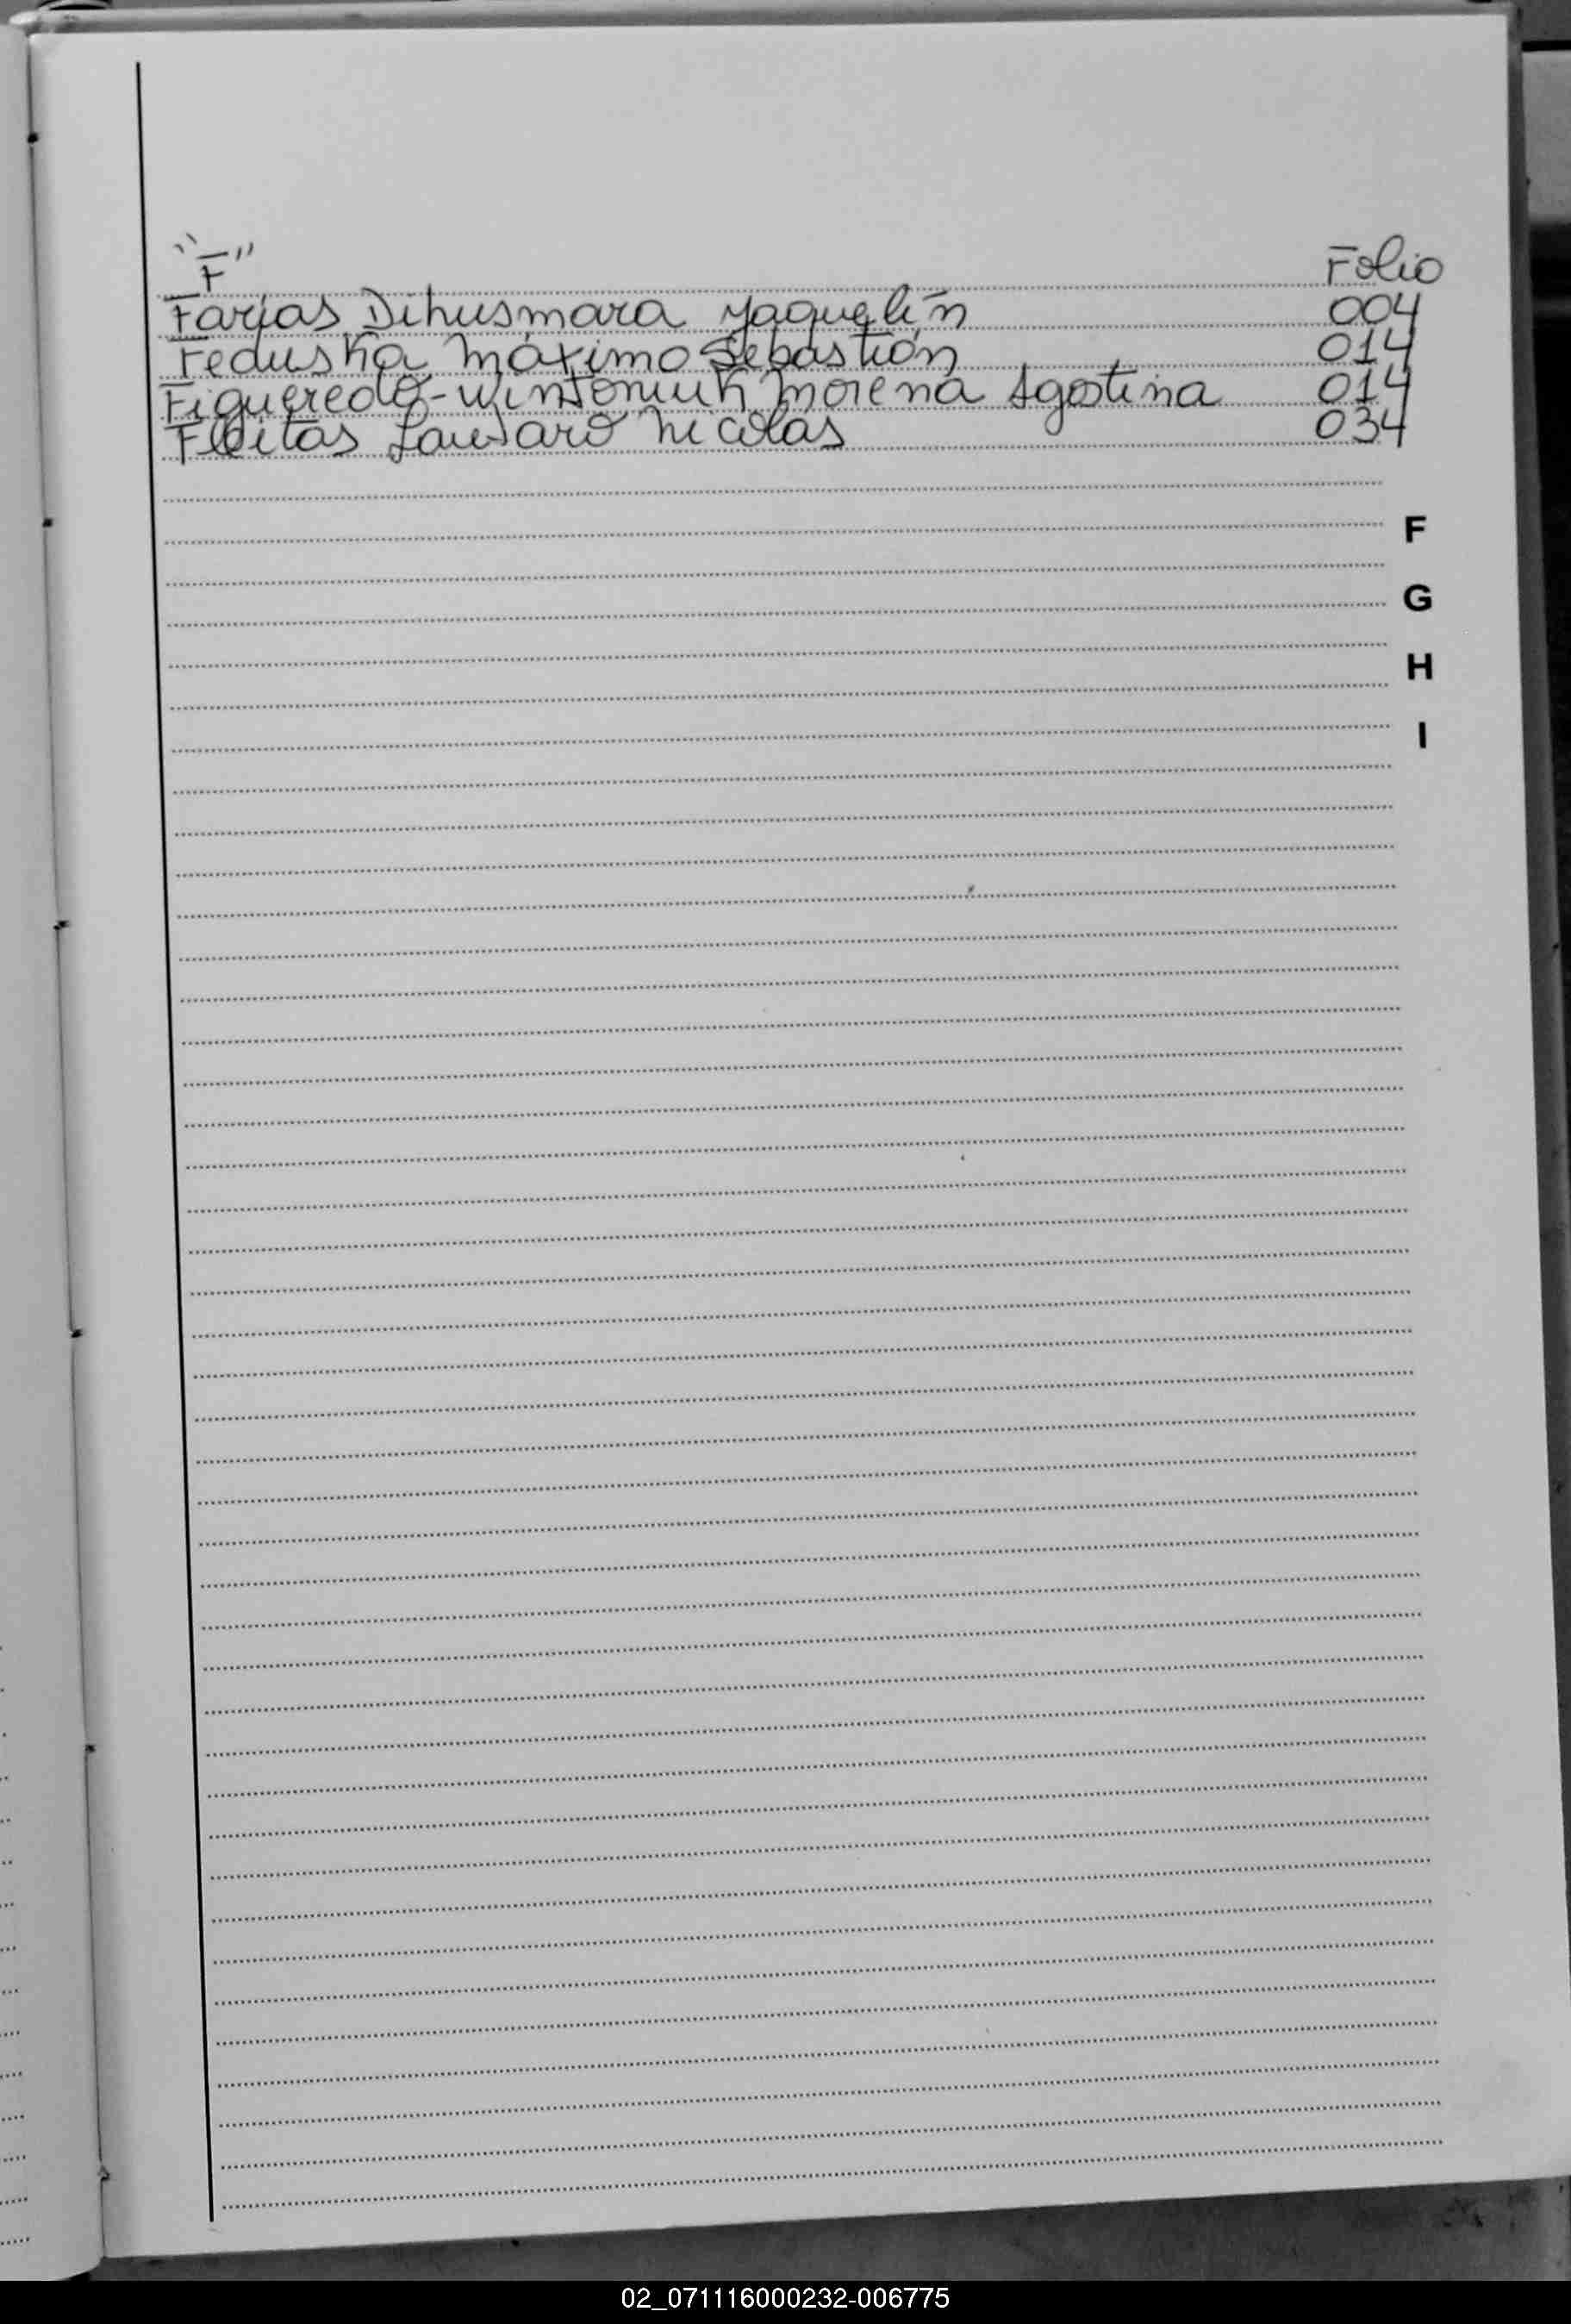 "F" Folio
Farias Dihusmara Yaquelín 004
Feduska Máximo Sebastián 014
Figueredo-Wintoniuk Morena Agostina 014
Fleitas Lautaro Nicolás 034
F
G
H
I
02_071116000232-006775